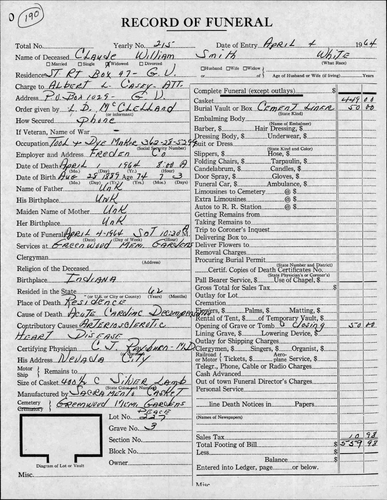 190
RECORD OF FUNERAL
Total No. Yearly No. 215 Date of Entry APRIL 4 1964
Name of Deceased Claude William Smith White
(What Race)
Married Single Widowed Divorced Husband Wife Widow of Age of Husband or Wife (if living) Years
Residence ST RT Box 97- G.V.
Charge to ALBERT L. CASEY. ATT.
Address P.O Box 1029- G.V.
Order given by L.D. McCLELLAND
How Secured Phone
If Veteran, Name of War -
Occupation Tool + Dye Maker 362-28-5294
Employer and Address Freden Co
Date of Death APRIL 1 1964 8:00 A
Date of Birth Aug 28 1889 Age 74 7 3
Name of Father Unk
His Birthplace Unk
Maiden Name of Mother Unk
Her Birthplace Unk
Date of Funeral APRIL 4-1964 SAT 10:30 A
Services at Greenwood Mem. Gardens
(Address)
Clergyman
Religion of the Deceased
Birthplace Indiana
Resided in the State 62
Place of Death Residence
Cause of Death Acute Cardiac Decompensation
Contributory Causes Arteriosclerotic
Heart Disease
Certifying Physician
His Address Nevada City
Motor Ship Remains to
Size of Casket C Silver Lamb
Manufactured by Sacramento Casket
Cemetery Crematory Greenwood Mem. Gardens
Lot No. 227 Peace
Grave No. 3
Section No.
Block No.
Owner
Diagram of Lot or Vault
Misc.
Complete Funeral (except outlays) $
Casket 449 00
Burial Vault or Box Cement Liner 50 00
(State Kind)
Embalming Body
(Name of Embalmer)
Barber, $ Hair Dressing, $
Dressing Body, $ Underwear, $
Suit or Dress
(State Kind and Color)
Slippers, $ Hose, $
Folding Chairs, $ Tarpaulin, $
Candelabrum, $ Candles, $
Door Spray, $ Gloves, $
Funeral Car, $ Ambulance, $
Limousines to Cemetery @ $
Extra Limousines @ $
Autos to R. R. Station @ $
Getting Remains from
Taking Remains to
Trip to Coroner's Inquest
Delivering Box to
Deliver Flowers to
Removal Charges
Procuring Burial Permit
(State Number and District)
Certif. Copies of Death Certificates No.
Pall Bearer Service, $ Use of Chapel, $
Gross Total for Sales Tax $
Outlay for Lot
Cremation
Flowers, $ Palms, $ Matting, $
Rental of Tent, $ of Temporary Vault, $
Opening of Grave or Tomb & Closing 50 00
Lining Grave, $ Lowering Device, $
Outlay for Shipping Charges
Clergyman, $ Singers, $ Organist, $
Telegr., Phone, Cable or Radio Charges
Cash Advanced
Out of town Funeral Director's Charges
Personal Service
line Death Notices in Papers
(Names of Newspapers)
Sales Tax 10 98
Total Footing of Bill $ 559 98
Less
Balance $
Entered into Ledger, page or below.
Misc.